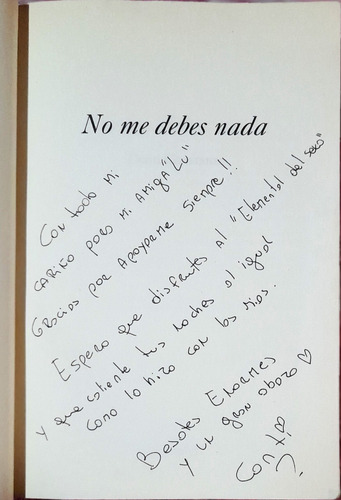 No me debes nada
Con todo mi
cariño para mi amiga "Lu"
Gracias por apoyarme siempre!!
Espero que disfrutes al "Elemental del sexo"
y que caliente tus noches al igual
como lo hizo con las mias.
Besotes Enormes
y un gran abrazo ♡